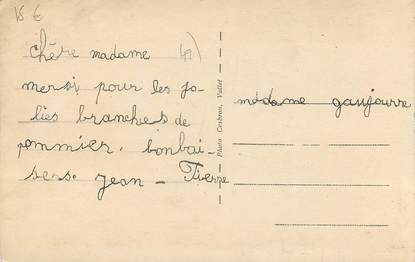 15 €
chère madame
mersi pour les jo-
lies branches de
pommier. bonbai-
sers. jean - Pierre
Photo Cesbron, Vallet
madame gaujourre